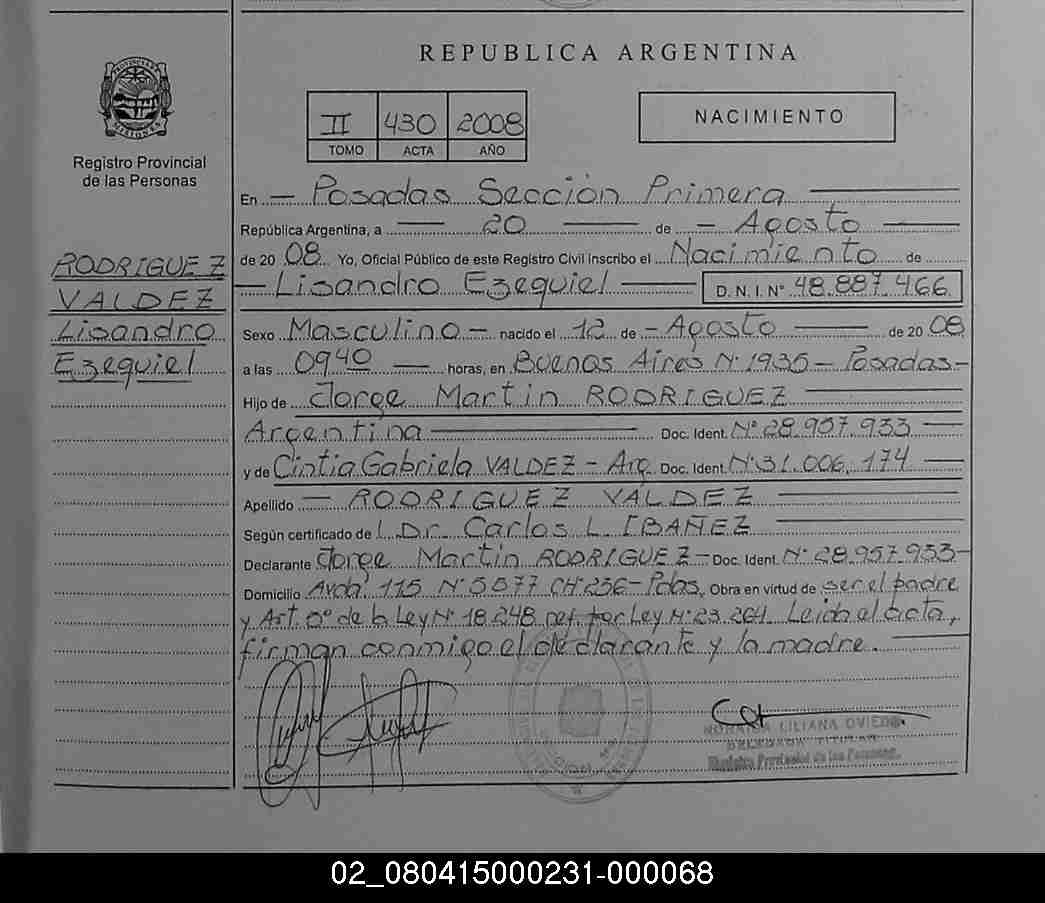 REPUBLICA ARGENTINA
II 430 2008
TOMO ACTA AÑO
NACIMIENTO
Registro Provincial
de las Personas
RODRIGUEZ
VALDEZ
Lisandro
Ezequiel
En — Posadas Sección Primera
República Argentina, a — 20 — de — Agosto
de 20 08 Yo, Oficial Público de este Registro Civil inscribo el Nacimiento de
— Lisandro Ezequiel — D.N.I. Nº 48.887.466
Sexo Masculino — nacido el 12 de — Agosto — de 20 08
a las 0940 — horas, en Buenos Aires Nº 1935 — Posadas —
Hijo de Jorge Martin RODRIGUEZ
Argentina — Doc. Ident. Nº 28.957.933 —
y de Cintia Gabriela VALDEZ — Arg. Doc. Ident. Nº 31.006.174 —
Apellido — RODRIGUEZ VALDEZ
Según certificado de Dr. Carlos L. IBAÑEZ
Declarante Jorge Martin RODRIGUEZ — Doc. Ident. Nº 28.957.933 —
Domicilio Avda. 115 Nº 5577 CH 256 — Pdas. Obra en virtud de ser el padre
y Art. 5º de la Ley Nº 18.248 por Ley Nº 23.264. Leída el acta,
firman conmigo el declarante y la madre.
LILIANA OVIEDO
DELEGADA TITULAR
Registro Provincial de las Personas
02_080415000231-000068